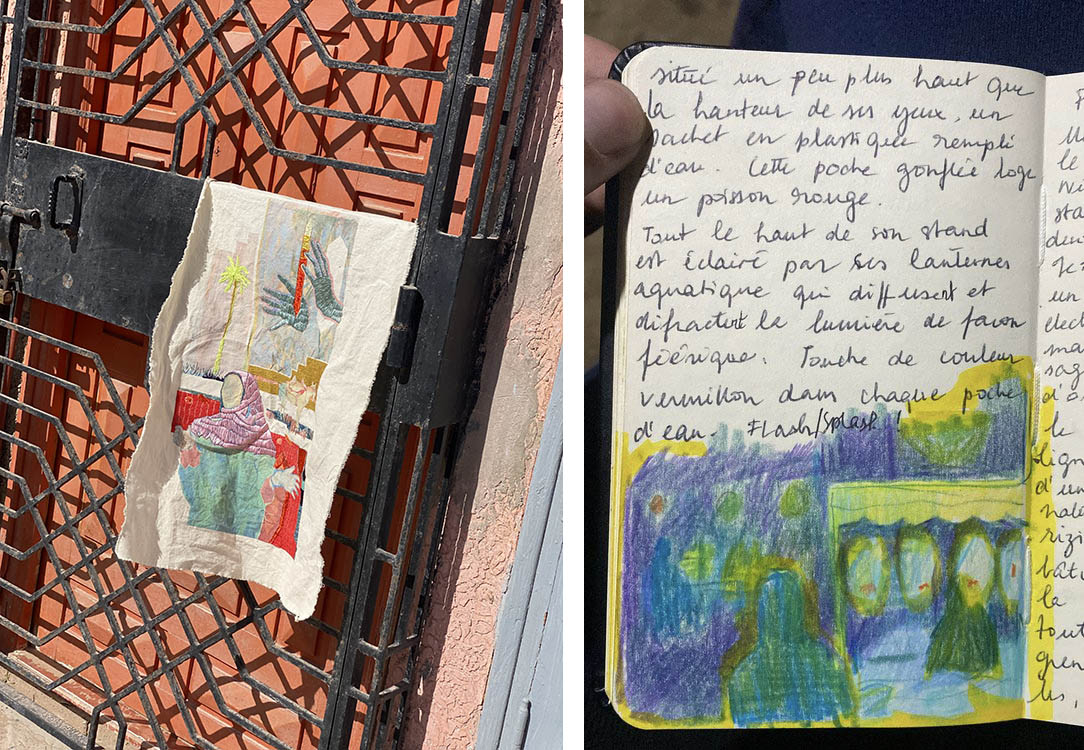 situé un peu plus haut que
la hauteur de ses yeux, un
sachet en plastique rempli
d'eau. Cette poche gonflée loge
un poisson rouge.
Tout le haut de son stand
est éclairé par ses lanternes
aquatique qui diffusent et
difractent la lumière de facon
féérique. Touche de couleur
vermillon dans chaque poche
d'eau. Flash/Splash !
le
sta
un
elect
ma
sag
d'o
le
lign
d'un
hale
rizi
bâti
la
tout
gren
les,